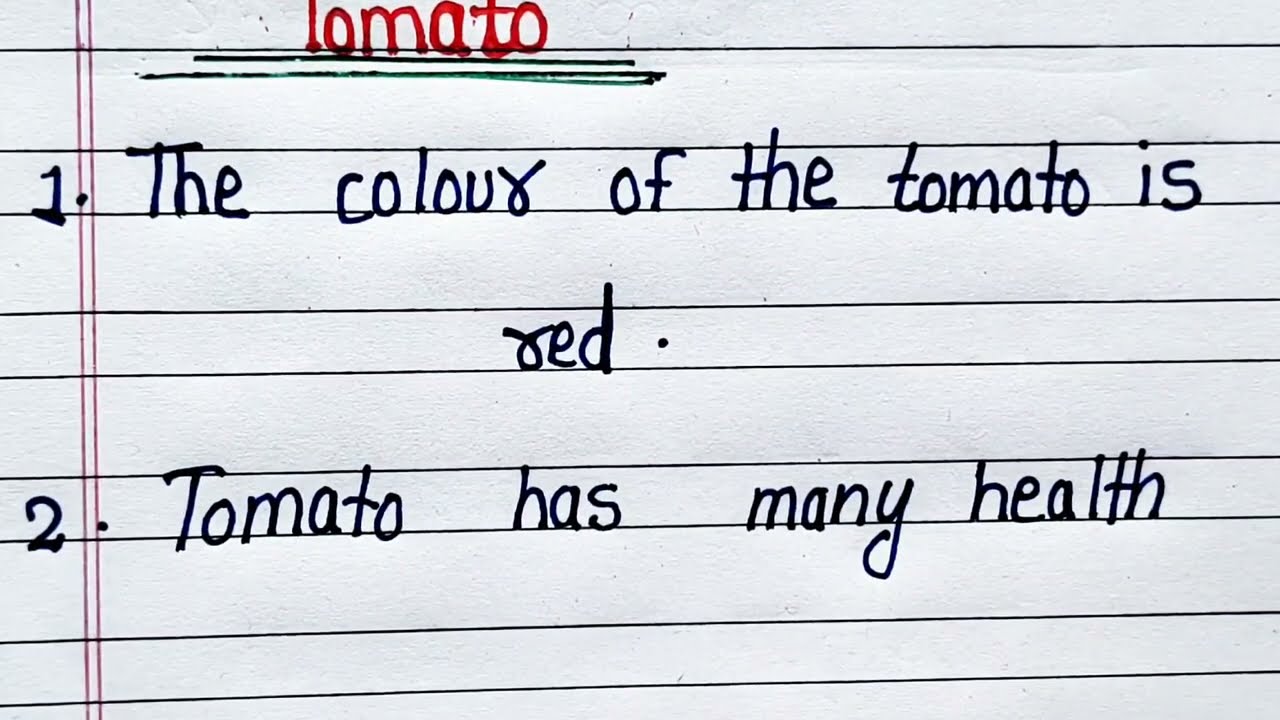 Tomato
1. The colour of the tomato is
red.
2. Tomato has many health